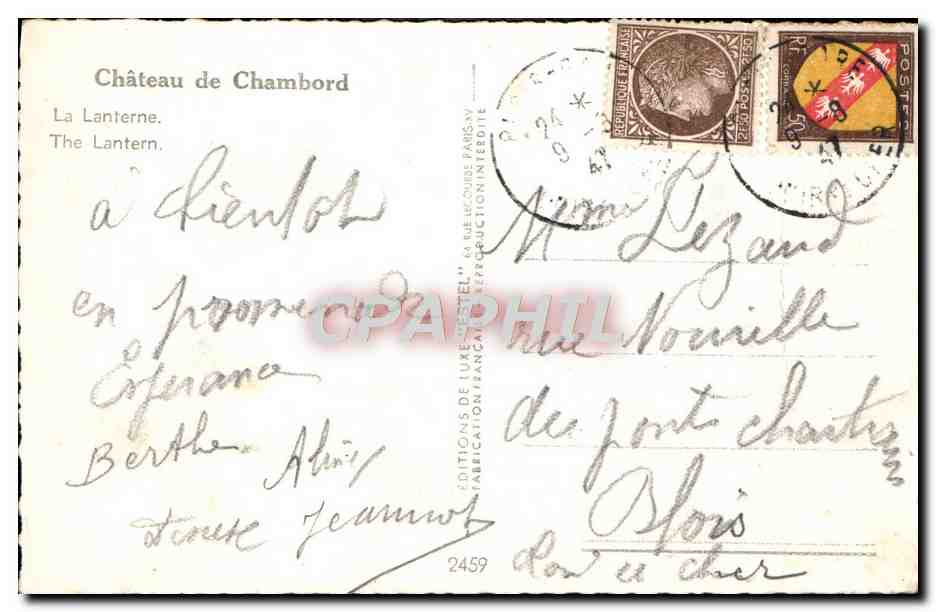 Château de Chambord
La Lanterne.
The Lantern.
à bientot
en promenade
Esperance
Berthe Aline
Denise Jeannot
EDITIONS DE LUXE "ESTEL" 64 RUE LECOURBE PARIS-XV
FABRICATION FRANÇAISE REPRODUCTION INTERDITE
2459
REPUBLIQUE FRANÇAISE
2F50 POSTES 2F50
RF POSTES
50
Mme Lezand
rue Nouvelle
des ponts chartrains
Blois
Loir et cher
CPAPHIL